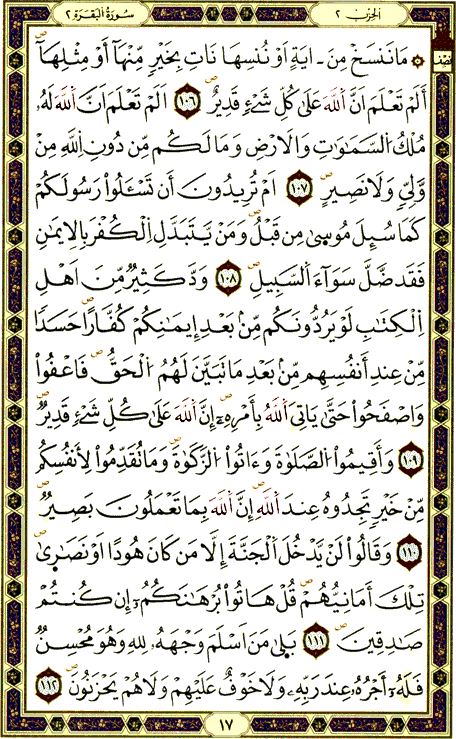 الحِزْب ٢ سُورَةُ البَقَرَة ٢
مَا نَنسَخْ مِنَ ـ ايَةٍ اَوْ نُنسِهَا نَاتِ بِخَيْرٍ مِّنْهَآ أَوْ مِثْلِهَآ
أَلَمْ تَعْلَمَ اَنَّ اَ۬للَّهَ عَلَىٰ كُلِّ شَےْءٍ قَدِيرٌ ١٠٦ اَلَمْ تَعْلَمَ اَنَّ اَ۬للَّهَ لَهُۥ
مُلْكُ اُ۬لسَّمَٰوَٰتِ وَالَارْضِ وَمَا لَكُم مِّن دُونِ اِ۬للَّهِ مِنْ
وَّلِيّٖ وَلَا نَصِيرٍ ١٠٧ اَمْ تُرِيدُونَ أَن تَسْـَٔلُواْ رَسُولَكُمْ
كَمَا سُئِلَ مُوسۭيٰ مِن قَبْلُ وَمَنْ يَّتَبَدَّلِ اِ۬لْكُفْرَ بِالِايمَٰنِ
فَقَد ضَّلَّ سَوَآءَ اَ۬لسَّبِيلِ ١٠٨ وَدَّ كَثِيرٌ مِّنَ اَهْلِ
اِ۬لْكِتَٰبِ لَوْ يَرُدُّونَكُم مِّنۢ بَعْدِ إِيمَٰنِكُمْ كُفَّاراً حَسَداً
مِّنْ عِندِ أَنفُسِهِم مِّنۢ بَعْدِ مَا تَبَيَّنَ لَهُمُ اُ۬لْحَقُّ فَاعْفُواْ
وَاصْفَحُواْ حَتَّىٰ يَاتِيَ اَ۬للَّهُ بِأَمْرِهِۦٓ إِنَّ اَ۬للَّهَ عَلَىٰ كُلِّ شَےْءٍ قَدِيرٌ
١٠٩ وَأَقِيمُواْ اُ۬لصَّلَوٰةَ وَءَاتُواْ اُ۬لزَّكَوٰةَ وَمَا تُقَدِّمُواْ لِأَنفُسِكُم
مِّنْ خَيْرٍ تَجِدُوهُ عِندَ اَ۬للَّهِ إِنَّ اَ۬للَّهَ بِمَا تَعْمَلُونَ بَصِيرٌ
١١٠ وَقَالُواْ لَنْ يَّدْخُلَ اَ۬لْجَنَّةَ إِلَّا مَن كَانَ هُوداً اَوْ نَصَٰرۭيٰ
تِلْكَ أَمَانِيُّهُمْ قُلْ هَاتُواْ بُرْهَٰنَكُمُۥٓ إِن كُنتُمْ
صَٰدِقِينَ ١١١ بَلۭيٰ مَنَ اَسْلَمَ وَجْهَهُۥ لِلهِ وَهُوَ مُحْسِنٌ
فَلَهُۥٓ أَجْرُهُۥ عِندَ رَبِّهِۦ وَلَا خَوْفٌ عَلَيْهِمْ وَلَا هُمْ يَحْزَنُونَ ١١٢
١٧